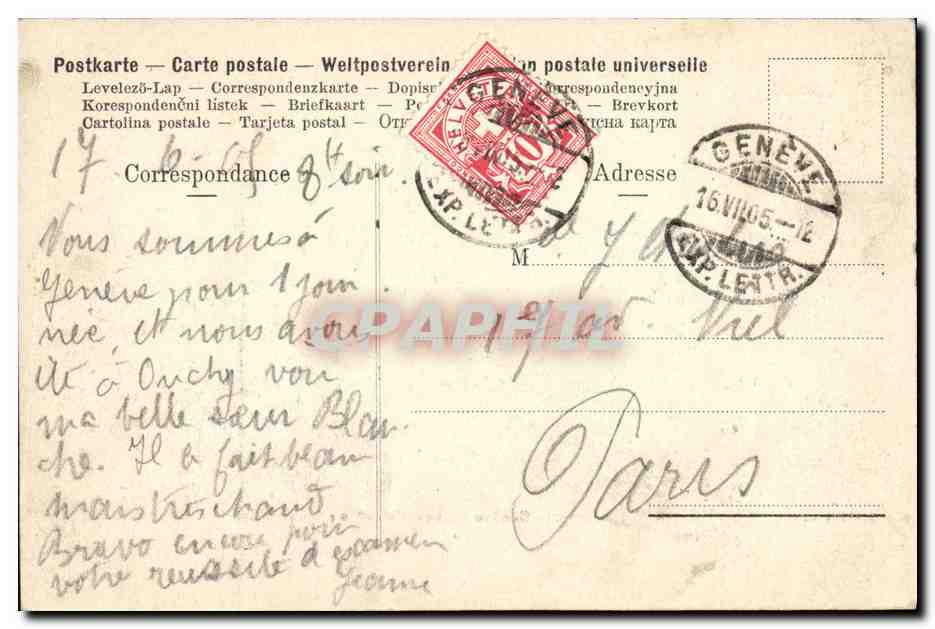 Postkarte — Carte postale — Weltpostverein — Union postale universelle
Levelező-Lap — Correspondenzkarte — Dopisn correspondencyjna
Korespondenční lístek — Briefkaart — Po — Brevkort
Cartolina postale — Tarjeta postal — Отк писна карта
HELVETIA
10
GENÈVE
EXP. LETTR.
GENÈVE
16.VII.05.–12
EXP. LETTR.
17 05 8h soir.
Correspondance
Adresse
Vous sommes à
Genève pour 1 jour
née, et nous avons
été à Ouchy voir
ma belle sœur Blan
che. Il a fait beau
mais très chaud
Bravo encore pour
votre reussite d'examen
Jeanne
M
17 av. Niel
Paris
CPAPHIL